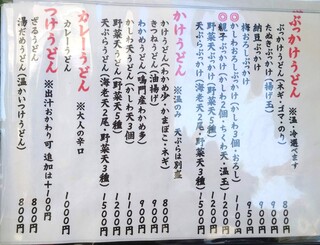 ぶっかけうどん ※温・冷選べます
ぶっかけうどん(ネギ・ゴマ・のり) 800円
たぬきぶっかけ(揚げ玉) 900円
納豆ぶっかけ 900円
梅おろしぶっかけ 950円
かしわおろしぶっかけ(かしわ3個・おろし) 1100円
◎親子ぶっかけ(かしわ2個・ちくわ天・温玉) 1200円
天ぷらぶっかけ(海老天2尾・野菜天3種) 1500円
かけうどん ※温のみ 天ぷらは別皿
かけうどん(わかめ少・かまぼこ・ネギ) 800円
きつねうどん(油揚げ) 900円
わかめうどん(鳴門産わかめ多) 900円
かしわ天うどん(かしわ天3個) 1100円
野菜天うどん(野菜天5種) 1200円
天ぷらうどん(海老天2尾・野菜天3種) 1500円
カレーうどん ※大人の辛口
カレーうどん 1000円
つけうどん ※出汁おかわり可 追加は+100円
ざるうどん 800円
湯だめうどん(温かいつけうどん) 800円